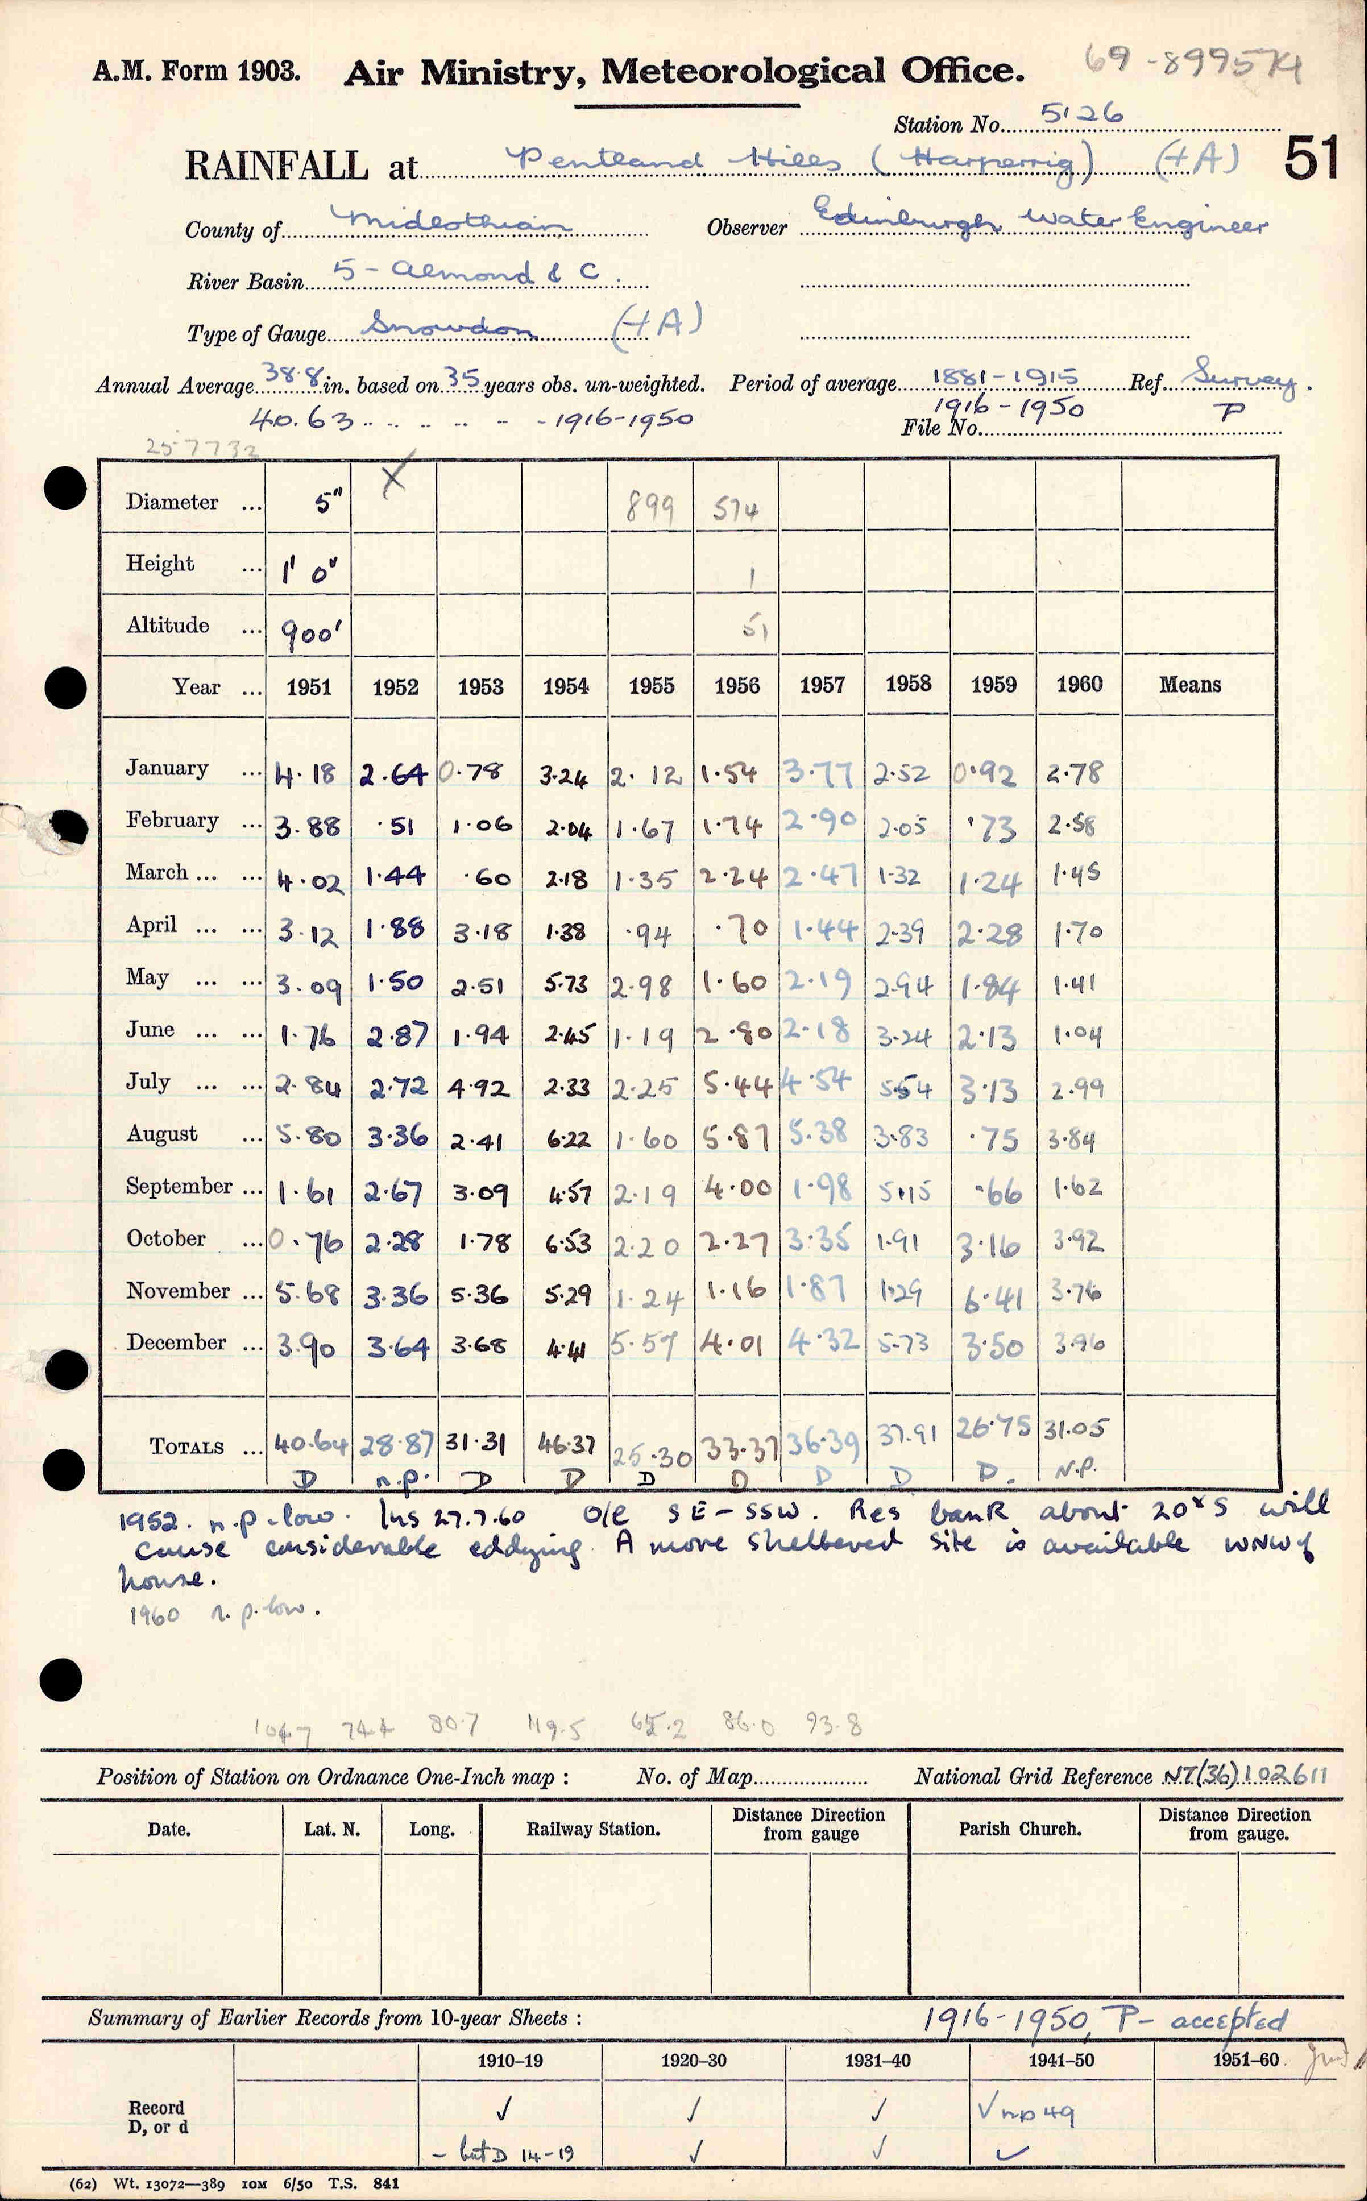 A.M. Form 1903. Air Ministry, Meteorological Office. 69-899574
Station No. 5126
RAINFALL at Pentland Hills (Harperrig) (+A) 51
County of Midlothian Observer Edinburgh Water Engineer
River Basin 5 - Almond & C.
Type of Gauge Snowdon (+A)
Annual Average 38.8 in. based on 35 years obs. un-weighted. Period of average 1881-1915 Ref. Survey.
40.63 .. .. .. .. - - 1916-1950 1916-1950 P
File No.
25-7732
Diameter ... 5" X 899 574
Height ... 1' 0" 1
Altitude ... 900' 51
Year ... 1951 1952 1953 1954 1955 1956 1957 1958 1959 1960 Means
January ... 4.18 2.64 0.78 3.24 2.12 1.54 3.77 2.52 0.92 2.78
February ... 3.88 .51 1.06 2.04 1.67 1.74 2.90 2.05 .73 2.58
March ... ... 4.02 1.44 .60 2.18 1.35 2.24 2.47 1.32 1.24 1.45
April ... ... 3.12 1.88 3.18 1.38 .94 .70 1.44 2.39 2.28 1.70
May ... ... 3.09 1.50 2.51 5.73 2.98 1.60 2.19 2.94 1.84 1.41
June ... ... 1.76 2.87 1.94 2.45 1.19 2.80 2.18 3.24 2.13 1.04
July ... ... 2.84 2.72 4.92 2.33 2.25 5.44 4.54 5.54 3.13 2.99
August ... 5.80 3.36 2.41 6.22 1.60 5.87 5.38 3.83 .75 3.84
September ... 1.61 2.67 3.09 4.57 2.19 4.00 1.98 5.15 .66 1.62
October ... 0.76 2.28 1.78 6.53 2.20 2.27 3.35 1.91 3.16 3.92
November ... 5.68 3.36 5.36 5.29 1.24 1.16 1.87 1.29 6.41 3.76
December ... 3.90 3.64 3.68 4.41 5.57 4.01 4.32 5.73 3.50 3.96
TOTALS ... 40.64 28.87 31.31 46.37 25.30 33.37 36.39 37.91 26.75 31.05
D n.p. D D D D D D D. N.P.
1952. n.p. low. Ins 27.7.60 O/e SE-SSW. Res bank about 20x S will
cause considerable eddying. A more sheltered site is available WNW of
house.
1960 n.p. low.
104.7 74.4 80.7 119.5 65.2 86.0 93.8
Position of Station on Ordnance One-Inch map : No. of Map National Grid Reference NT(36)102611
Date. Lat. N. Long. Railway Station. Distance Direction from gauge Parish Church. Distance Direction from gauge.
Summary of Earlier Records from 10-year Sheets : 1916-1950, P- accepted
1910-19 1920-30 1931-40 1941-50 1951-60
Record ✓ ✓ ✓ ✓ np 49
D, or d - but D 14-19 ✓ ✓ ✓
(62) Wt. 13072—389 10M 6/50 T.S. 841